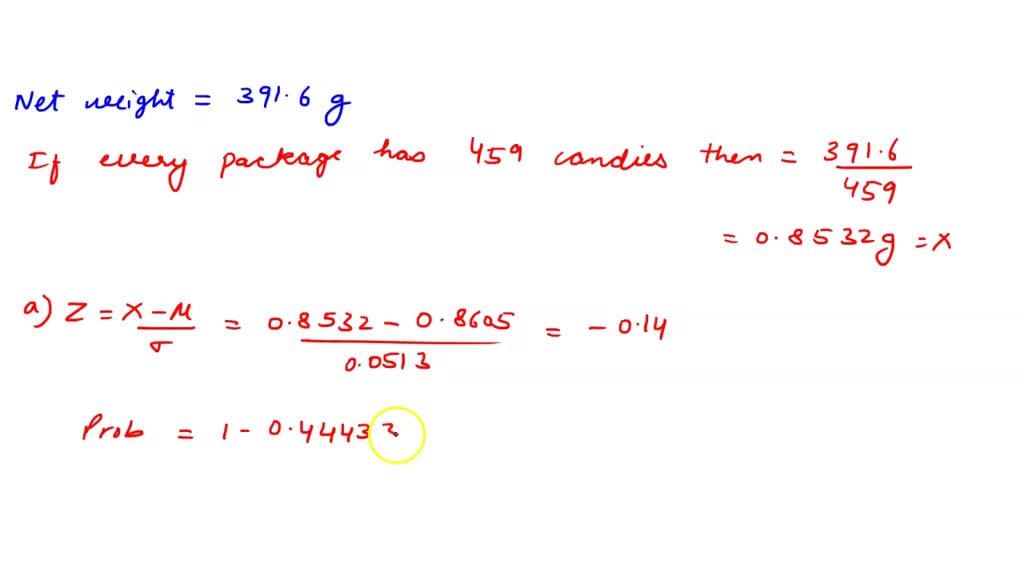 Net weight = 391.6 g
If every package has 459 candies then = 391.6 / 459
= 0.8532g = x
a) Z = X - μ / σ = 0.8532 - 0.8605 / 0.0513 = - 0.14
Prob = 1 - 0.4443